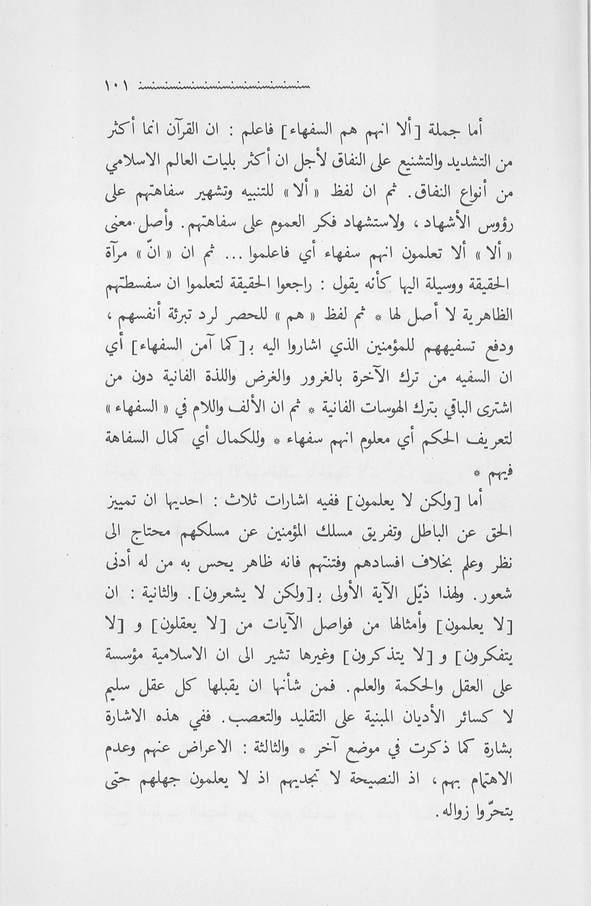 ١٠١
أما جملة [ألا انهم هم السفهاء] فاعلم : ان القرآن انما أكثر
من التشديد والتشنيع على النفاق لأجل ان أكثر بليات العالم الاسلامي
من أنواع النفاق. ثم ان لفظ « ألا » للتنبيه وتشهير سفاهتهم على
رؤوس الأشهاد ، ولاستشهاد فكر العموم على سفاهتهم. وأصل معنى
« ألا » ألا تعلمون انهم سفهاء أي فاعلموا ... ثم ان « انّ » مرآة
الحقيقة ووسيلة اليها كأنه يقول : راجعوا الحقيقة لتعلموا ان سفسطتهم
الظاهرية لا أصل لها * ثم لفظ « هم » للحصر لرد تبرئة أنفسهم ،
ودفع تسفيههم للمؤمنين الذي اشاروا اليه بـ[كما آمن السفهاء] أي
ان السفيه من ترك الآخرة بالغرور والغرض واللذة الفانية دون من
اشترى الباقي بترك الهوسات الفانية * ثم ان الألف واللام في « السفهاء »
لتعريف الحكم أي معلوم انهم سفهاء * وللكمال أي كمال السفاهة
فيهم *
أما [ولكن لا يعلمون] ففيه اشارات ثلاث : احديها ان تمييز
الحق عن الباطل وتفريق مسلك المؤمنين عن مسلكهم محتاج الى
نظر وعلم بخلاف افسادهم وفتنتهم فانه ظاهر يحس به من له أدنى
شعور. ولهذا ذيّل الآية الأولى بـ[ولكن لا يشعرون]. والثانية : ان
[لا يعلمون] وأمثالها من فواصل الآيات من [لا يعقلون] و [لا
يتفكرون] و [لا يتذكرون] وغيرها تشير الى ان الاسلامية مؤسسة
على العقل والحكمة والعلم. فمن شأنها ان يقبلها كل عقل سليم
لا كسائر الأديان المبنية على التقليد والتعصب. ففي هذه الاشارة
بشارة كما ذكرت في موضع آخر * والثالثة : الاعراض عنهم وعدم
الاهتمام بهم، اذ النصيحة لا تجديهم اذ لا يعلمون جهلهم حتى
يتحرّوا زواله.